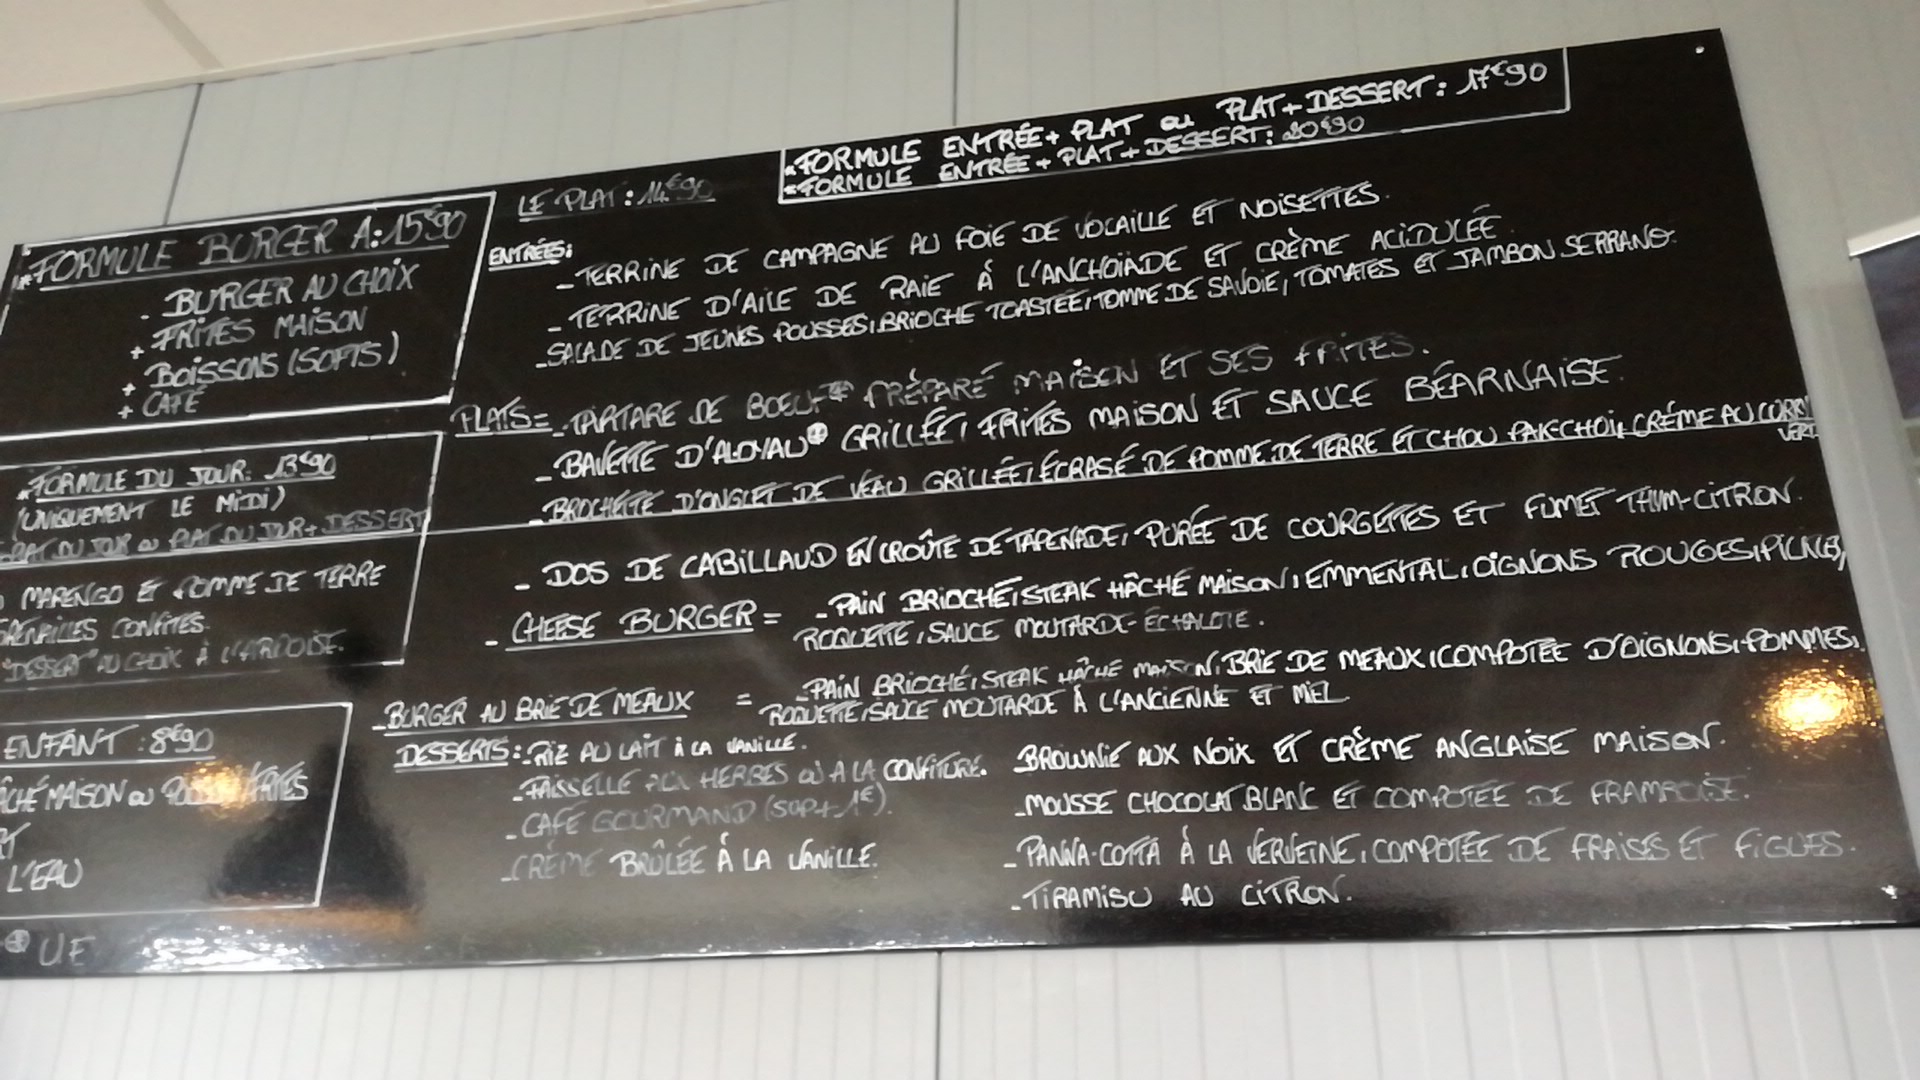 *FORMULE ENTRÉE+ PLAT ou PLAT+DESSERT: 17€90
*FORMULE ENTRÉE+PLAT+DESSERT: 20€90
LE PLAT: 14€90
*FORMULE BURGER A: 15€90
- BURGER AU CHOIX
+ FRITES MAISON
+ BOISSONS (SOFTS)
+ CAFÉ
*FORMULE DU JOUR: 13€90
(UNIQUEMENT LE MIDI)
PLAT DU JOUR ou PLAT DU JOUR + DESSERT
MARENGO ET POMME DE TERRE
GRENAILLES CONFITES.
"DESSERT" AU CHOIX À L'ARDOISE.
ENFANT: 8€90
MAISON ou FRITES
L'EAU
* UE
ENTRÉES:
- TERRINE DE CAMPAGNE AU FOIE DE VOLAILLE ET NOISETTES.
- TERRINE D'AILE DE RAIE À L'ANCHOIADE ET CRÈME ACIDULÉE
- SALADE DE JEUNES POUSSES, BRIOCHE TOASTÉE, TOMME DE SAVOIE, TOMATES ET JAMBON SERRANO.
PLATS= - TARTARE DE BOEUF* PRÉPARÉ MAISON ET SES FRITES.
- BAVETTE D'ALOYAU* GRILLÉE, FRITES MAISON ET SAUCE BÉARNAISE.
- BROCHETTE D'ONGLET DE VEAU GRILLÉE, ÉCRASÉ DE POMME DE TERRE ET CHOU PAK-CHOI, CRÈME AU
VERT
- DOS DE CABILLAUD EN CROÛTE DE TAPENADE, PURÉE DE COURGETTES ET FUMET THYM-CITRON.
- CHEESE BURGER = - PAIN BRIOCHÉ, STEAK HÂCHÉ MAISON, EMMENTAL, OIGNONS ROUGES, PICKLES,
ROQUETTE, SAUCE MOUTARDE-ÉCHALOTE.
- BURGER AU BRIE DE MEAUX = - PAIN BRIOCHÉ, STEAK HÂCHÉ MAISON, BRIE DE MEAUX, COMPOTÉE D'OIGNONS, POMMES,
ROQUETTE, SAUCE MOUTARDE À L'ANCIENNE ET MIEL
DESSERTS: - RIZ AU LAIT À LA VANILLE.
- FAISSELLE AUX HERBES OU A LA CONFITURE.
- CAFÉ GOURMAND (SUP+ 1€).
- CRÈME BRÛLÉE À LA VANILLE.
- BROWNIE AUX NOIX ET CRÈME ANGLAISE MAISON.
- MOUSSE CHOCOLAT BLANC ET COMPOTÉE DE FRAMBOISE.
- PANNA-COTTA À LA VERVEINE, COMPOTÉE DE FRAISES ET FIGUES.
- TIRAMISU AU CITRON.